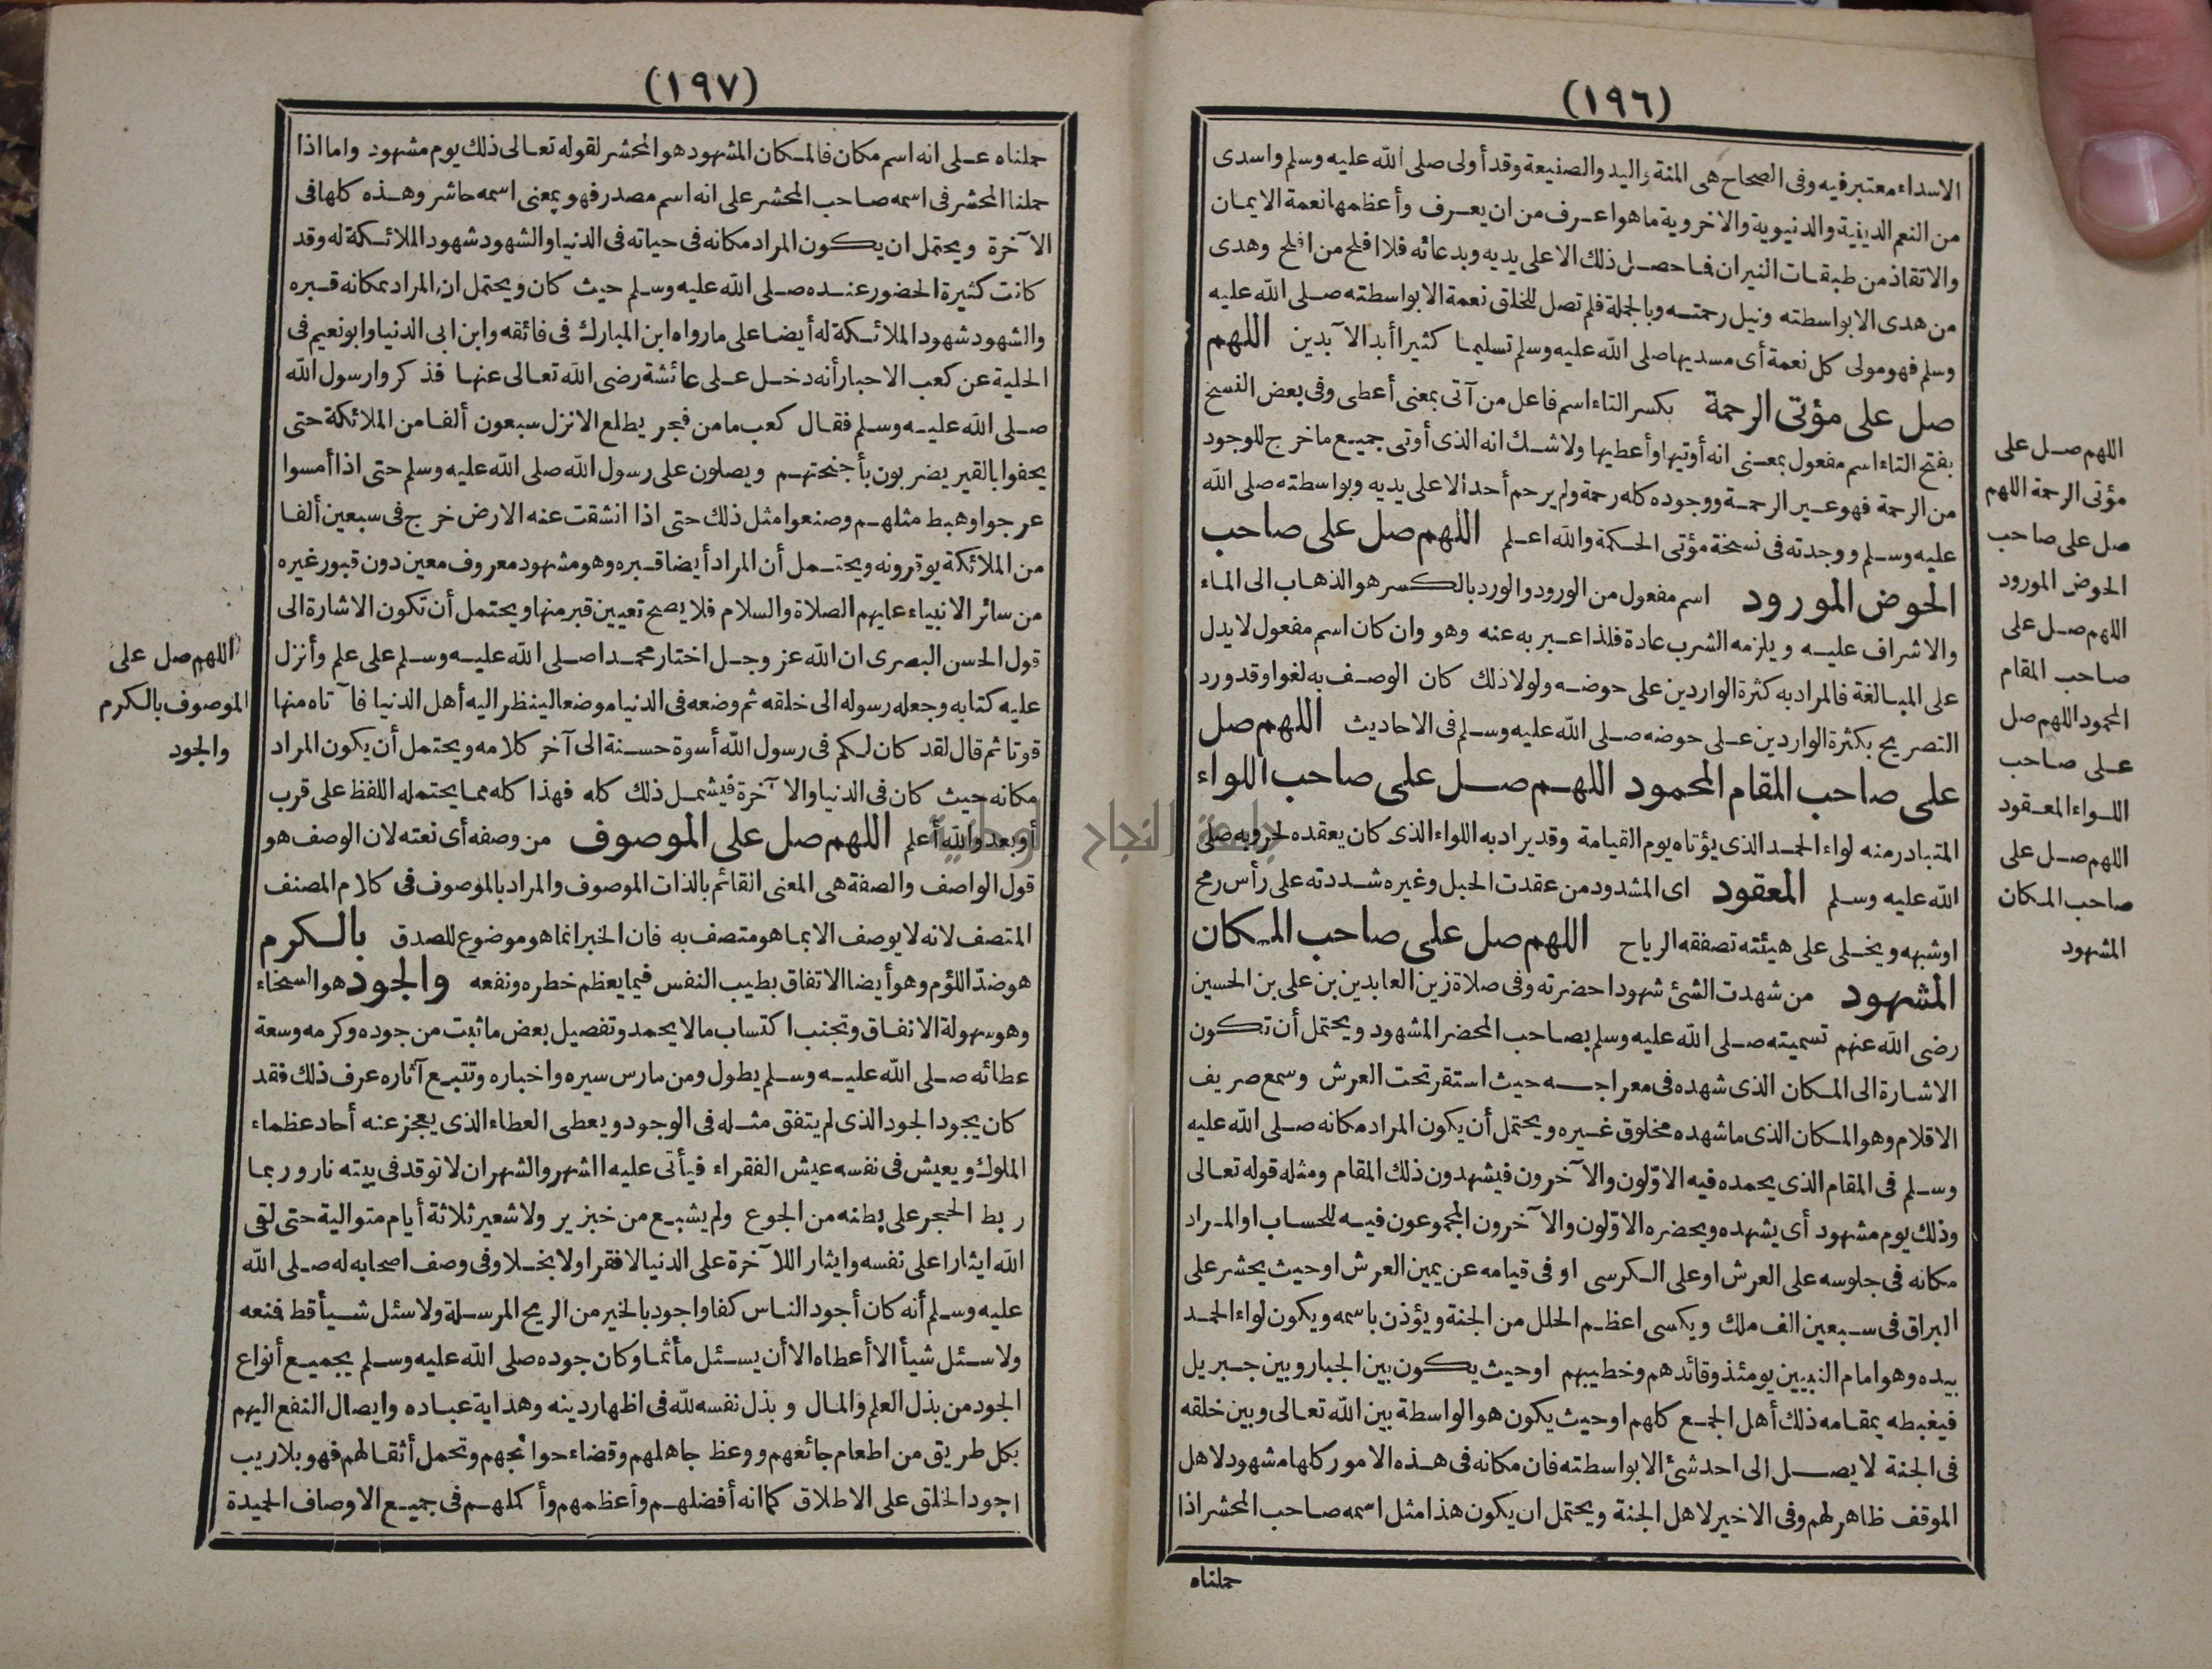 (١٩٦)
الاسداء معتبر فيه وفى الصحاح هى المنة واليد والصنيعة وقد أولى صلى الله عليه وسلم واسدى
من النعم الدينية والدنيوية والاخروية ما هو اعرف من ان يعرف وأعظمها نعمة الايمان
والانقاذ من طبقات النيران فما حصل ذلك الا على يديه وبدعائه فلا افلح من افلح وهدى
من هدى الا بواسطته ونيل رحمته وبالجملة فلم تصل للخلق نعمة الا بواسطته صلى الله عليه
وسلم فهو مولى كل نعمة أى مسديها صلى الله عليه وسلم تسليما كثيرا أبد الآبدين اللهم
صل على مؤتى الرحمة بكسر التاء اسم فاعل من آتى بمعنى أعطى وفى بعض النسخ
بفتح التاء اسم مفعول بمعنى انه أوتيها وأعطيها ولا شك انه الذى أوتى جميع ما خرج للوجود
من الرحمة فهو عير الرحمة ووجوده كله رحمة ولم يرحم أحد الا على يديه وبواسطته صلى الله
عليه وسلم ووجدته فى نسخة مؤتى الحكمة والله اعلم اللهم صل على صاحب
الحوض المورود اسم مفعول من الورود والورد بالكسر هو الذهاب الى الماء
والاشراف عليه ويلزمه الشرب عادة فلذا عبر به عنه وهو وان كان اسم مفعول لا يدل
على المبالغة فالمراد به كثرة الواردين على حوضه ولولا ذلك كان الوصف به لغوا وقد ورد
التصريح بكثرة الواردين على حوضه صلى الله عليه وسلم فى الاحاديث اللهم صل
على صاحب المقام المحمود اللهم صل على صاحب اللواء
المتبادر منه لواء الحمد الذى يؤتاه يوم القيامة وقد يراد به اللواء الذى كان يعقده لحروبه صلى
الله عليه وسلم المعقود اى المشدود من عقدت الحبل وغيره شددته على رأس رمح
اوشبهه ويخلى على هيئته تصفقه الرياح اللهم صل على صاحب المكان
المشهود من شهدت الشئ شهودا حضرته وفى صلاة زين العابدين بن على بن الحسين
رضى الله عنهم تسميته صلى الله عليه وسلم بصاحب المحضر المشهود ويحتمل أن تكون
الاشارة الى المكان الذى شهده فى معراجه حيث استقر تحت العرش وسمع صريف
الاقلام وهو المكان الذى ما شهده مخلوق غيره ويحتمل أن يكون المراد مكانه صلى الله عليه
وسلم فى المقام الذى يحمده فيه الاوّلون والآخرون فيشهدون ذلك المقام ومثله قوله تعالى
وذلك يوم مشهود أى يشهده ويحضره الاوّلون والآخرون المجموعون فيه للحساب او المراد
مكانه فى جلوسه على العرش او على الكرسى او فى قيامه عن يمين العرش او حيث يحشر على
البراق فى سبعين الف ملك ويكسى اعظم الحلل من الجنة ويؤذن باسمه ويكون لواء الحمد
بيده وهو امام النبيين يومئذ وقائدهم وخطيبهم او حيث يكون بين الجبار وبين جبريل
فيغبطه بمقامه ذلك أهل الجمع كلهم او حيث يكون هو الواسطة بين الله تعالى وبين خلقه
فى الجنة لا يصل الى احد شئ الا بواسطته فان مكانه فى هذه الامور كلها مشهود لاهل
الموقف ظاهر لهم وفى الاخير لاهل الجنة ويحتمل ان يكون هذا مثل اسمه صاحب المحشر اذا
حملناه
اللهم صل على
مؤتى الرحمة اللهم
صل على صاحب
الحوض المورود
اللهم صل على
صاحب المقام
المحمود اللهم صل
على صاحب
اللواء المعقود
اللهم صل على
صاحب المكان
المشهود
(١٩٧)
حملناه على انه اسم مكان فالمكان المشهود هو المحشر لقوله تعالى ذلك يوم مشهود واما اذا
حملنا المحشر فى اسمه صاحب المحشر على انه اسم مصدر فهو بمعنى اسمه حاشر وهذه كلها فى
الآخرة ويحتمل ان يكون المراد مكانه فى حياته فى الدنيا والشهود شهود الملائكة له وقد
كانت كثيرة الحضور عنده صلى الله عليه وسلم حيث كان ويحتمل ان المراد بمكانه قبره
والشهود شهود الملائكة له أيضا على ما رواه ابن المبارك فى فائقه وابن ابى الدنيا وابو نعيم فى
الحلية عن كعب الاحبار أنه دخل على عائشة رضى الله تعالى عنها فذكروا رسول الله
صلى الله عليه وسلم فقال كعب ما من فجر يطلع الا نزل سبعون ألفا من الملائكة حتى
يحفوا بالقبر يضربون بأجنحتهم ويصلون على رسول الله صلى الله عليه وسلم حتى اذا أمسوا
عرجوا وهبط مثلهم وصنعوا مثل ذلك حتى اذا انشقت عنه الارض خرج فى سبعين ألفا
من الملائكة يوقرونه ويحتمل أن المراد أيضا قبره وهو مشهود معروف معين دون قبور غيره
من سائر الانبياء عليهم الصلاة والسلام فلا يصح تعيين قبر منها ويحتمل أن تكون الاشارة الى
قول الحسن البصرى ان الله عز وجل اختار محمدا صلى الله عليه وسلم على علم وأنزل
عليه كتابه وجعله رسوله الى خلقه ثم وضعه فى الدنيا موضعا لينظر اليه أهل الدنيا فآتاه منها
قوتا ثم قال لقد كان لكم فى رسول الله أسوة حسنة الى آخر كلامه ويحتمل أن يكون المراد
مكانه حيث كان فى الدنيا والآخرة فيشمل ذلك كله فهذا كله مما يحتمله اللفظ على قرب
أو بعد والله أعلم اللهم صل على الموصوف من وصفه أى نعته لان الوصف هو
قول الواصف والصفة هى المعنى القائم بالذات الموصوف والمراد بالموصوف فى كلام المصنف
المتصف لانه لا يوصف الا بما هو متصف به فان الخبر انما هو موضوع للصدق بالكرم
هو ضدّ اللؤم وهو أيضا الانفاق بطيب النفس فيما يعظم خطره ونفعه والجود هو السخاء
وهو سهولة الانفاق وتجنب اكتساب ما لا يحمد وتفصيل بعض ما ثبت من جوده وكرمه وسعة
عطائه صلى الله عليه وسلم يطول ومن مارس سيره واخباره وتتبع آثاره عرف ذلك فقد
كان يجود الجود الذى لم يتفق مثله فى الوجود ويعطى العطاء الذى يعجز عنه أحاد عظماء
الملوك ويعيش فى نفسه عيش الفقراء فيأتى عليه الشهر والشهران لا توقد فى بيته نار وربما
ربط الحجر على بطنه من الجوع ولم يشبع من خبز بر ولا شعير ثلاثة أيام متوالية حتى لقى
الله ايثارا على نفسه وايثار اللآخرة على الدنيا لا فقرا ولا بخلا وفى وصف اصحابه له صلى الله
عليه وسلم أنه كان أجود الناس كفا واجود بالخير من الريح المرسلة ولا سئل شيأ قط فمنعه
ولا سئل شيأ الا أعطاه الا أن يسئل مأثما وكان جوده صلى الله عليه وسلم بجميع أنواع
الجود من بذل العلم والمال وبذل نفسه لله فى اظهار دينه وهداية عباده وايصال النفع اليهم
بكل طريق من اطعام جائعهم ووعظ جاهلهم وقضاء حوائجهم وتحمل أثقالهم فهو بلا ريب
اجود الخلق على الاطلاق كما انه أفضلهم وأعظمهم وأكملهم فى جميع الاوصاف الحميدة
اللهم صل على
الموصوف بالكرم
والجود
جامعة النجاح الوطنية